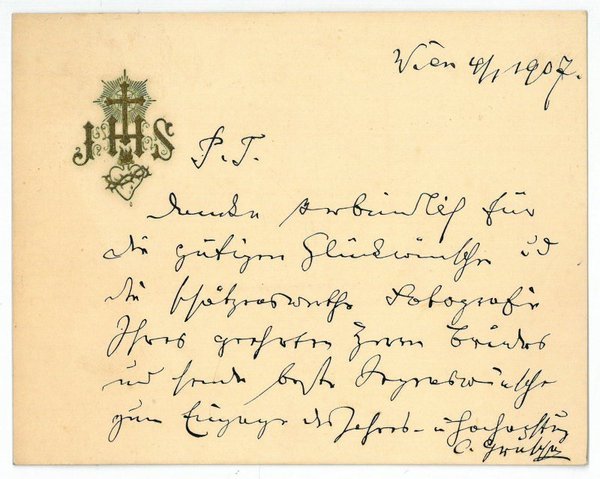 Wien 4/1 1907.
JHS
P. T.
danke verbindlich für
die gütigen Glückwünsche und
die schätzenswerthe Fotografie
Ihres geehrten Herrn Bruders
und sende beste Segenswünsche
zum Eingange des Jahres -